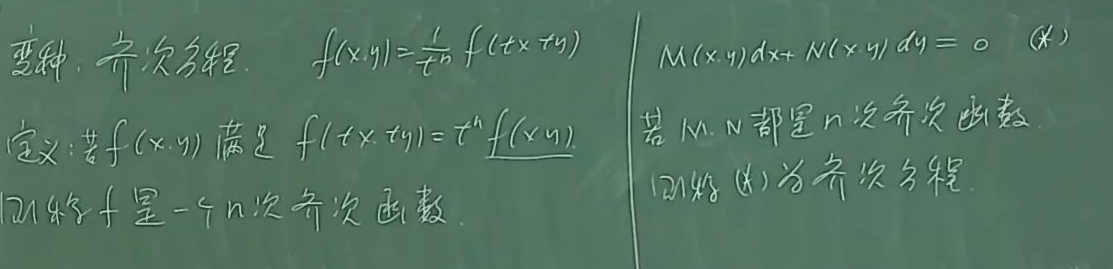 变种:齐次方程. f(x,y)=\frac{1}{t^n} f(tx,ty)
定义:若f(x,y)满足 f(tx,ty)=t^n f(x,y)
则称f是一个n次齐次函数.
M(x,y)dx+N(x,y)dy=0 (*)
若M.N都是n次齐次函数.
则称(*)为齐次方程.